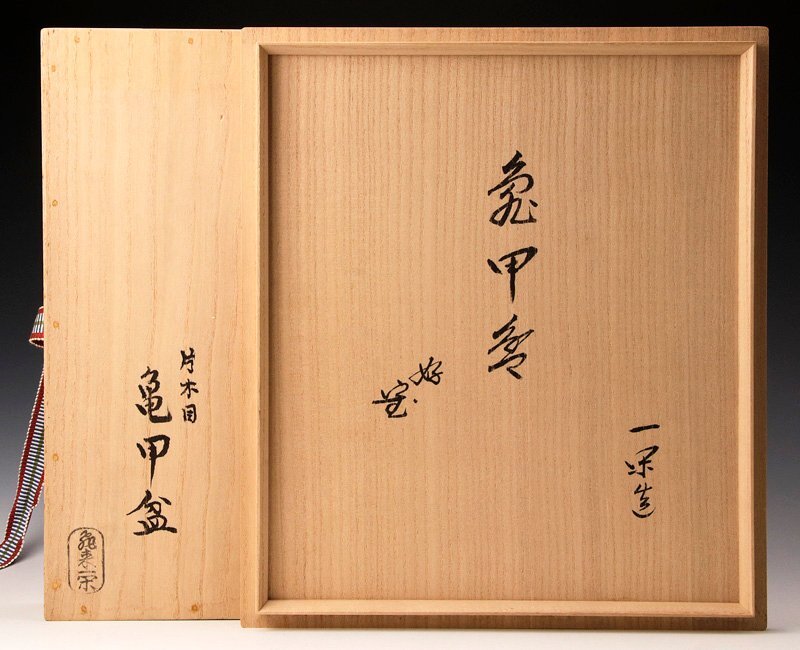 亀甲盆
好
一栄造
片木目
亀甲盆